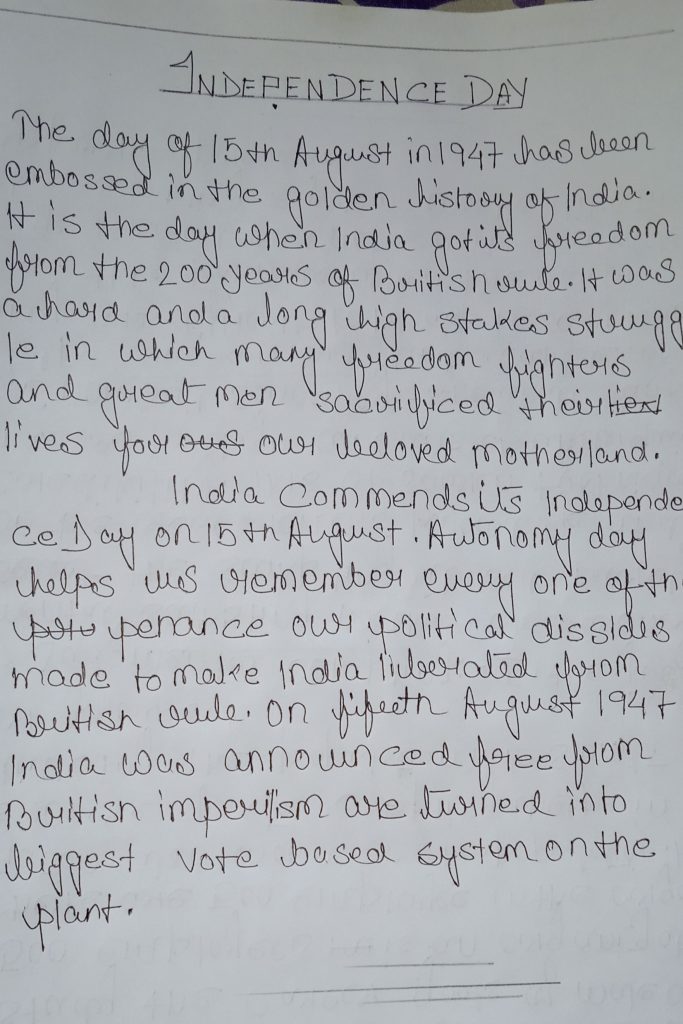 INDEPENDENCE DAY
The day of 15th August in 1947 has been
embossed in the golden history of India.
It is the day when India got its freedom
from the 200 years of British rule. It was
a hard and a long high stakes strugg
le in which many freedom fighters
and great men sacrificed their
lives for our beloved motherland.
India Commends its Independe
ce Day on 15th August. Autonomy day
helps us remember every one of th
penance our political dissides
made to make India liberated from
British rule. On fifeeth August 1947
India was announced free from
British imperilism are turned into
biggest vote based system on the
plant.